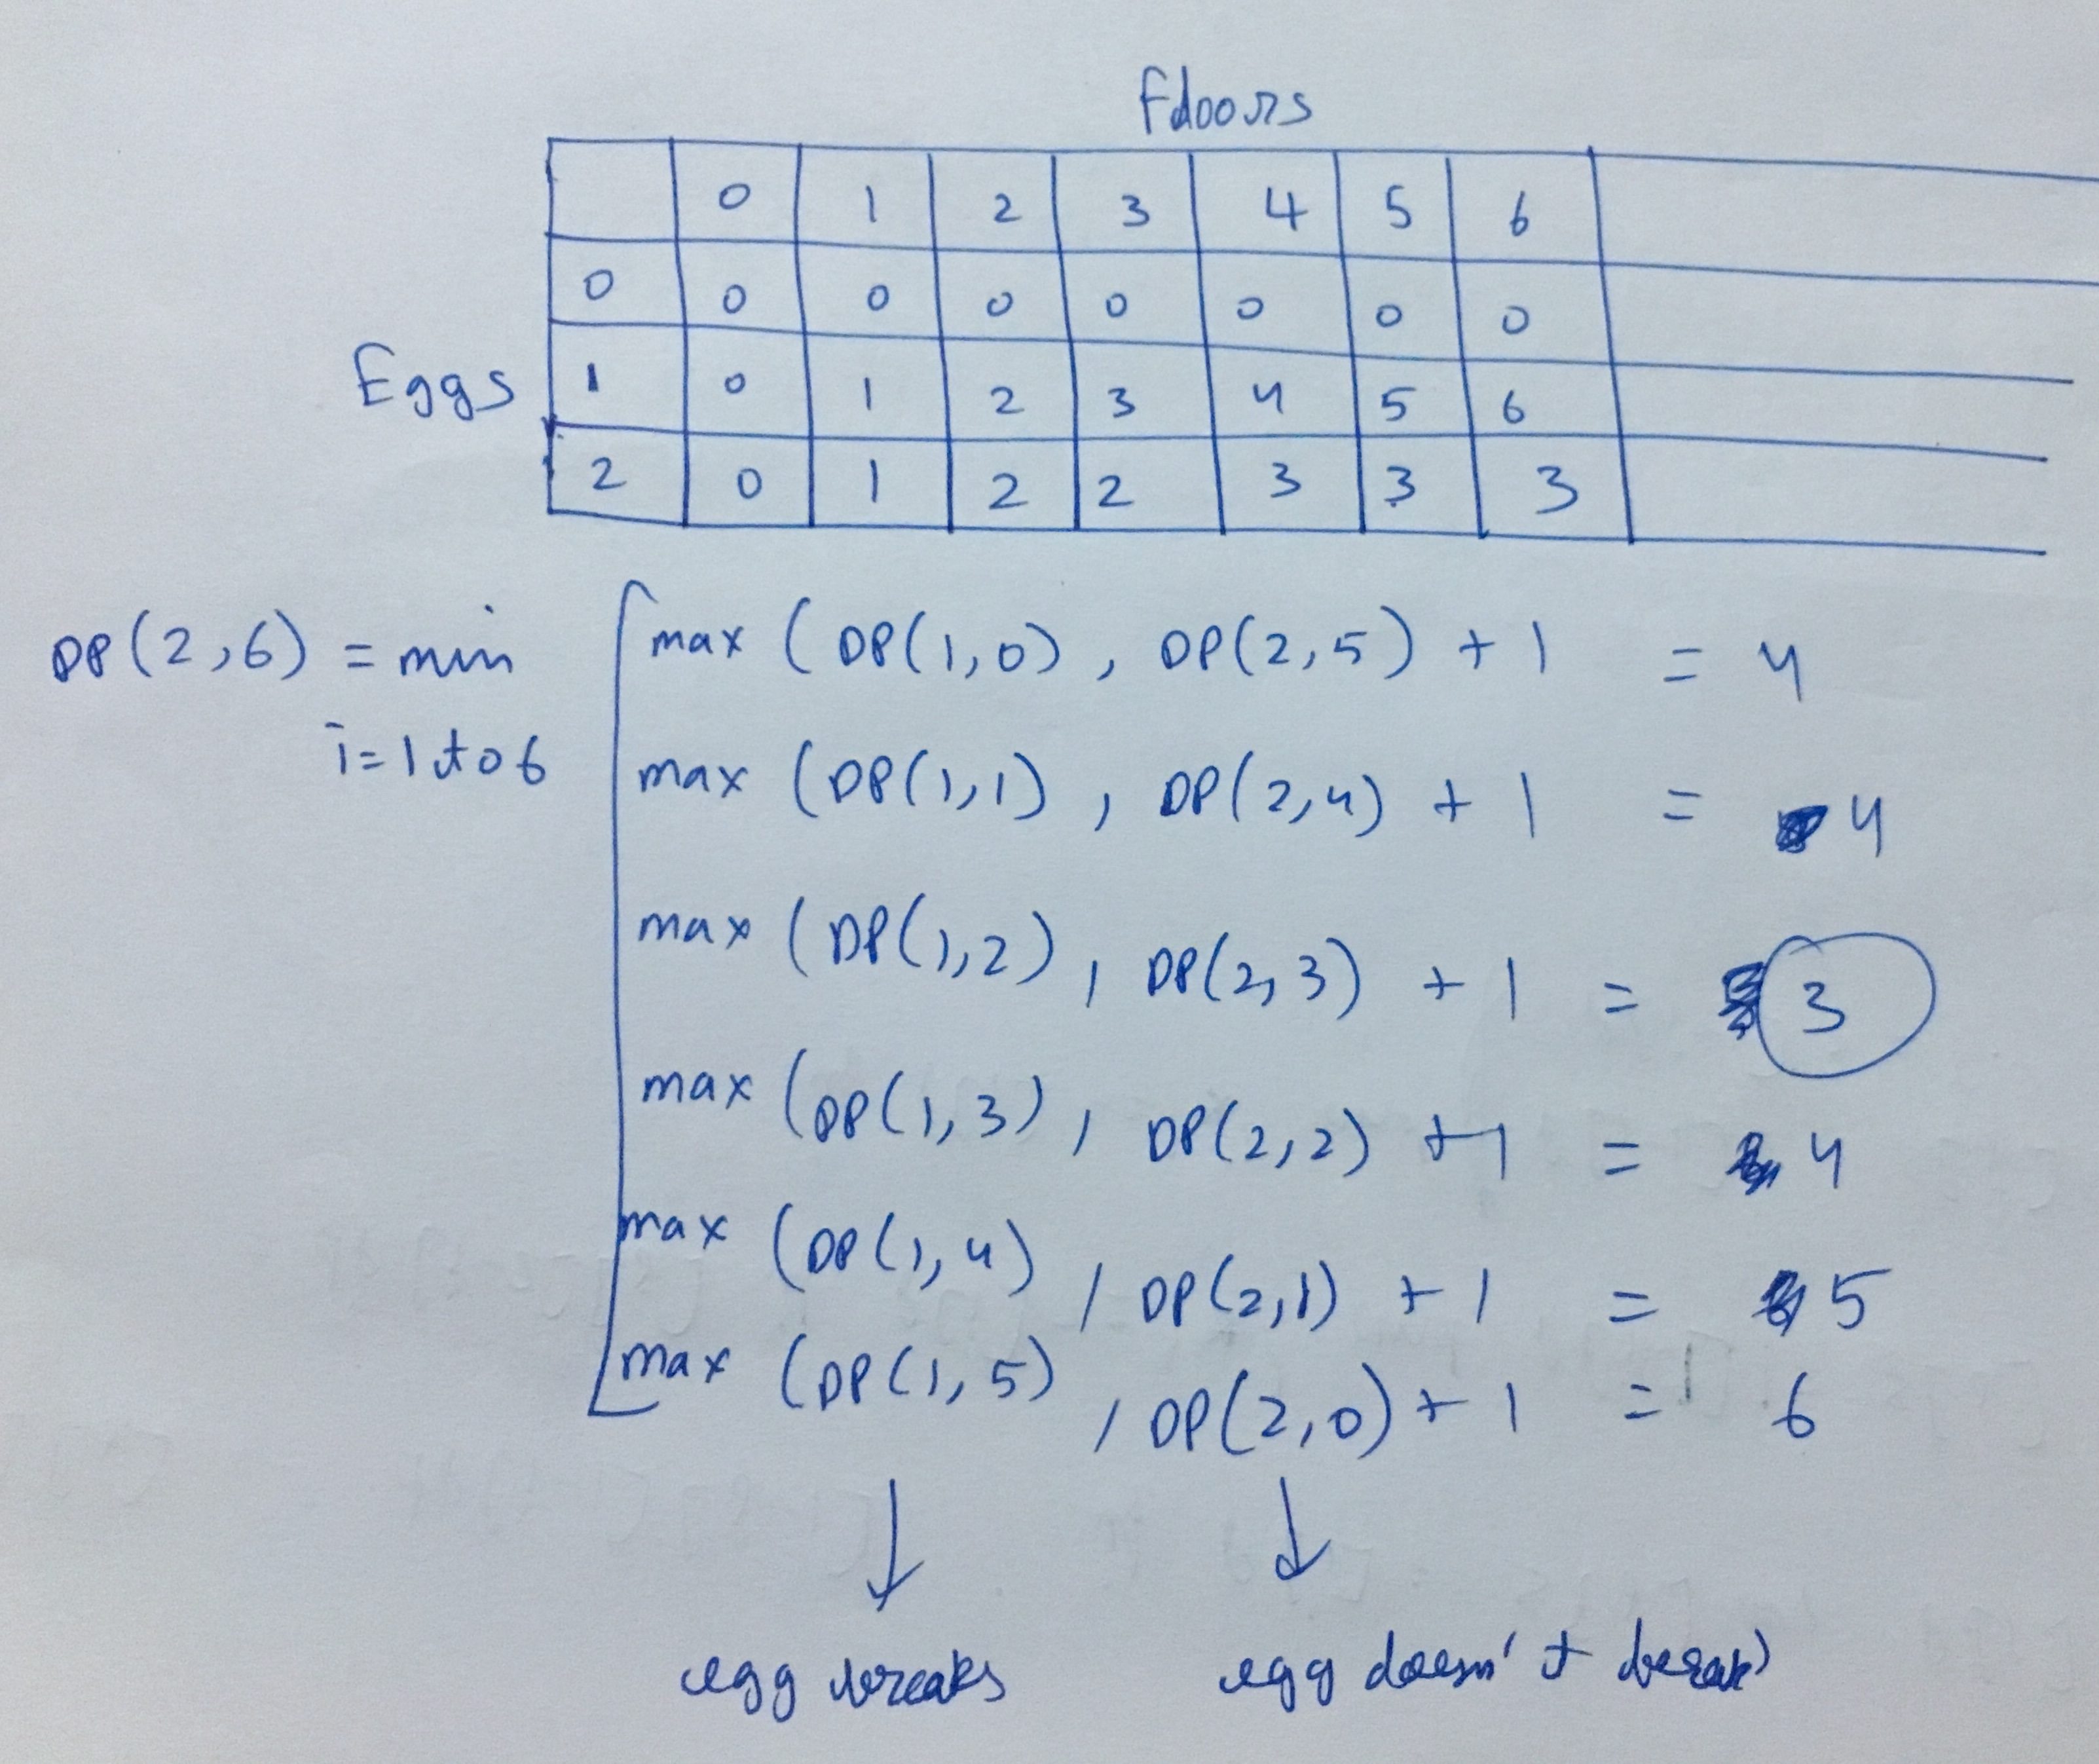 Fdoors
0 1 2 3 4 5 6
0 0 0 0 0 0 0 0
Eggs 1 0 1 2 3 4 5 6
2 0 1 2 2 3 3 3
DP(2,6) = min
i=1 to 6
max (DP(1,0), DP(2,5) + 1 = 4
max (DP(1,1), DP(2,4) + 1 = 4
max (DP(1,2), DP(2,3) + 1 = 3
max (DP(1,3), DP(2,2) + 1 = 4
max (DP(1,4), DP(2,1) + 1 = 5
max (DP(1,5), DP(2,0) + 1 = 6
↓ ↓
egg breaks egg doesn't break